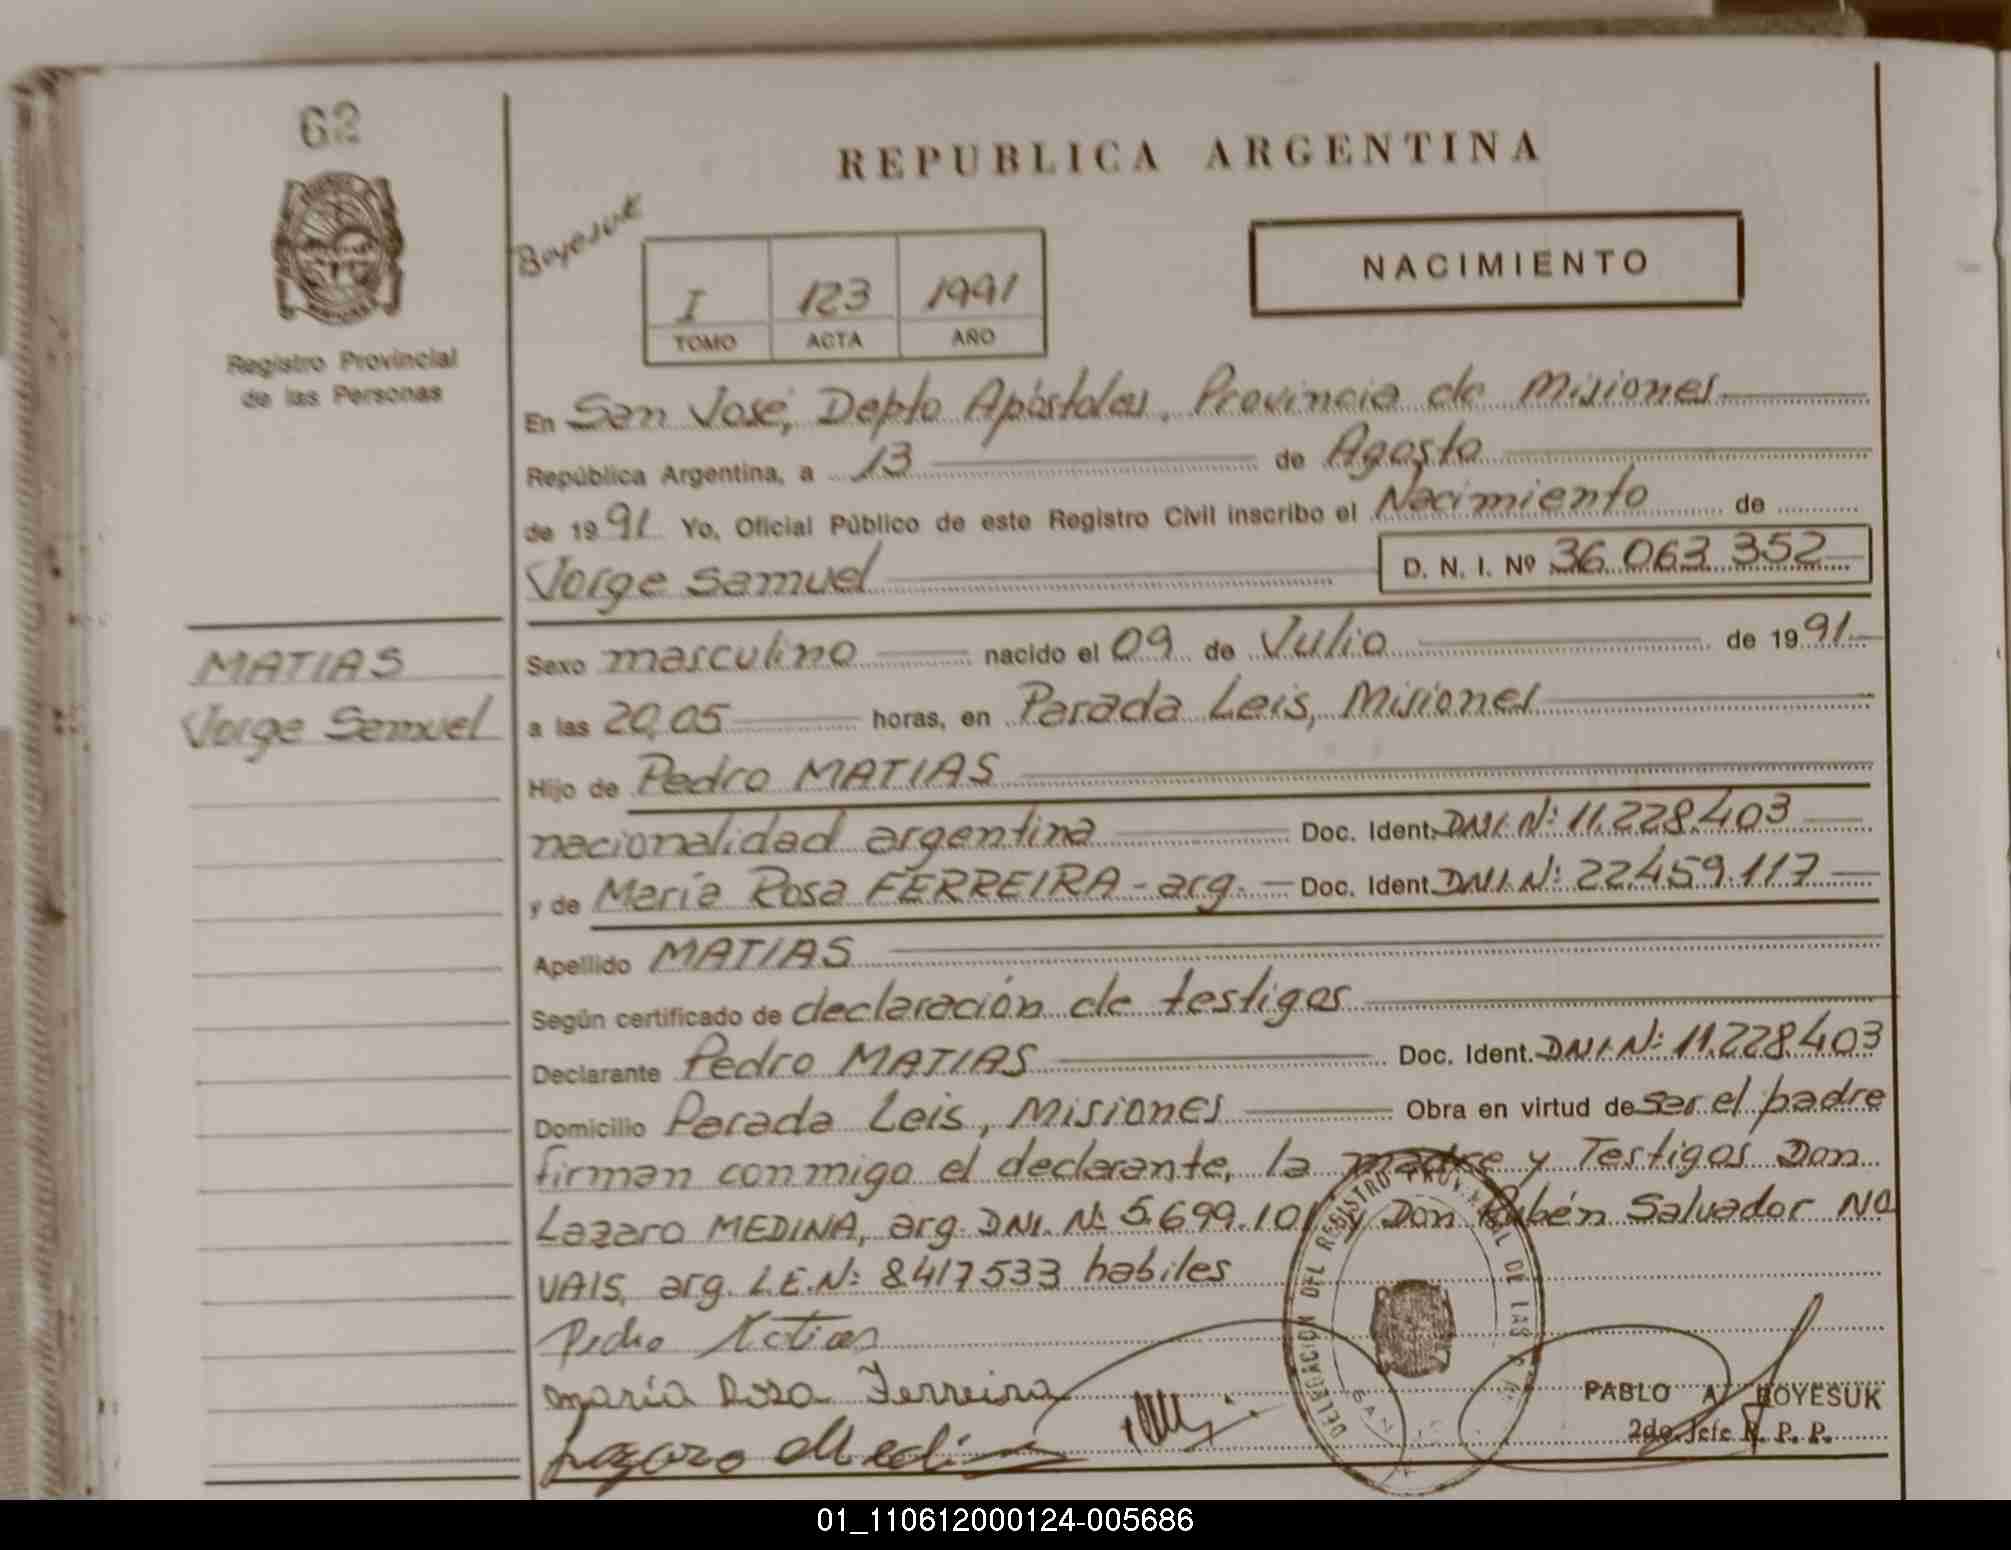 62
REPUBLICA ARGENTINA
Boyesuk
NACIMIENTO
I 123 1991
TOMO ACTA AÑO
Registro Provincial
de las Personas
En San José, Depto Apóstoles, Provincia de Misiones
República Argentina, a 13 de Agosto
de 1991 Yo, Oficial Público de este Registro Civil inscribo el Nacimiento de
Jorge Samuel D. N. I. Nº 36.063.352
MATIAS
Jorge Samuel
Sexo masculino nacido el 09 de Julio de 1991
a las 20,05 horas, en Parada Leis, Misiones
Hijo de Pedro MATIAS
nacionalidad argentina Doc. Ident. DNI. Nº: 11.228.403
y de María Rosa FERREIRA - arg. - Doc. Ident. DNI. Nº: 22.459.117
Apellido MATIAS
Según certificado de declaración de testigos
Declarante Pedro MATIAS Doc. Ident. DNI. Nº: 11.228.403
Domicilio Parada Leis, Misiones Obra en virtud de ser el padre
firman conmigo el declarante, la madre y Testigos Don
Lazaro MEDINA, arg. DNI. Nº 5.699.101 y Don Rubén Salvador NO
VAIS, arg. L.E.Nº: 8417533 habiles
Pedro Matias
maría Rosa Ferreira
Lazaro Medina
DELEGACION DEL REGISTRO PROVINCIAL DE LAS
SAN
PABLO A. BOYESUK
2do. Jefe R. P. P.
01_110612000124-005686